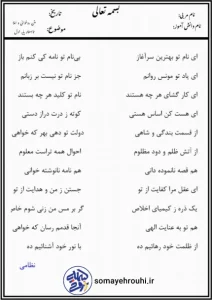 بسمه تعالی
نام مربی:
نام دانش آموز:
تاریخ:
موضوع:
ای نام تو بهترین سرآغاز
بی‌نام تو نامه کی کنم باز
ای یاد تو مونس روانم
جز نام تو نیست بر زبانم
ای کار گشای هر چه هستند
نام تو کلید هر چه بستند
ای هست کن اساس هستی
کوته ز درت دراز دستی
از قسمت بندگی و شاهی
دولت تو دهی بهر که خواهی
از آتش ظلم و دود مظلوم
احوال همه تراست معلوم
هم قصه نانموده دانی
هم نامه نانوشته خوانی
ای عقل مرا کفایت از تو
جستن ز من و هدایت از تو
یک ذره ز کیمیای اخلاص
گر بر مس من زنی شوم خاص
هم تو به عنایت الهی
آنجا قدمم رسان که خواهی
از ظلمت خود رهائیم ده
با نور خود آشنائیم ده
نظامی
somayehrouhi.ir